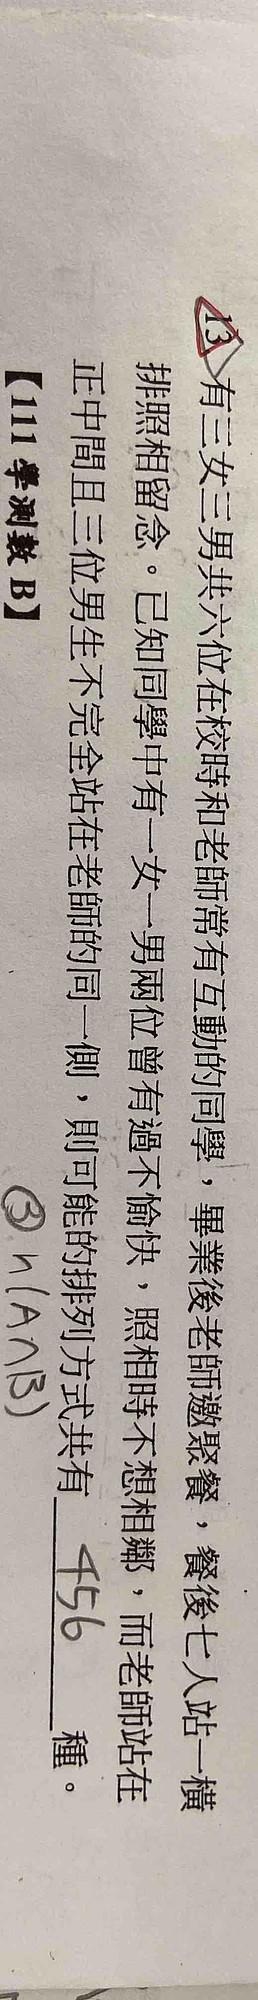 13 有三女三男共六位在校時和老師常有互動的同學，畢業後老師邀聚餐，餐後七人站一橫
排照相留念。已知同學中有一女一男兩位曾有過不愉快，照相時不想相鄰，而老師站在
正中間且三位男生不完全站在老師的同一側，則可能的排列方式共有 456 種。
【111 學測數 B】
③ n(A∩B)